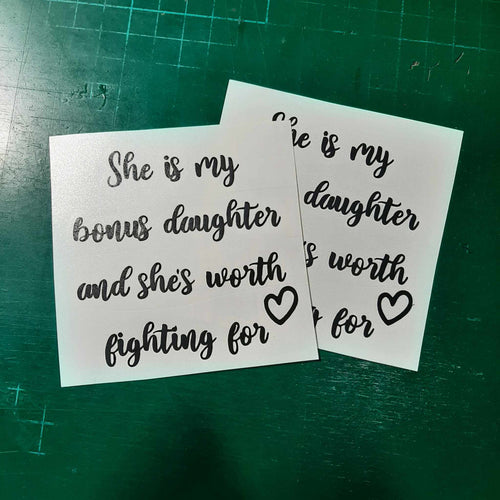 She is my
bonus daughter
and she's worth
fighting for
he is my
daughter
s worth
for